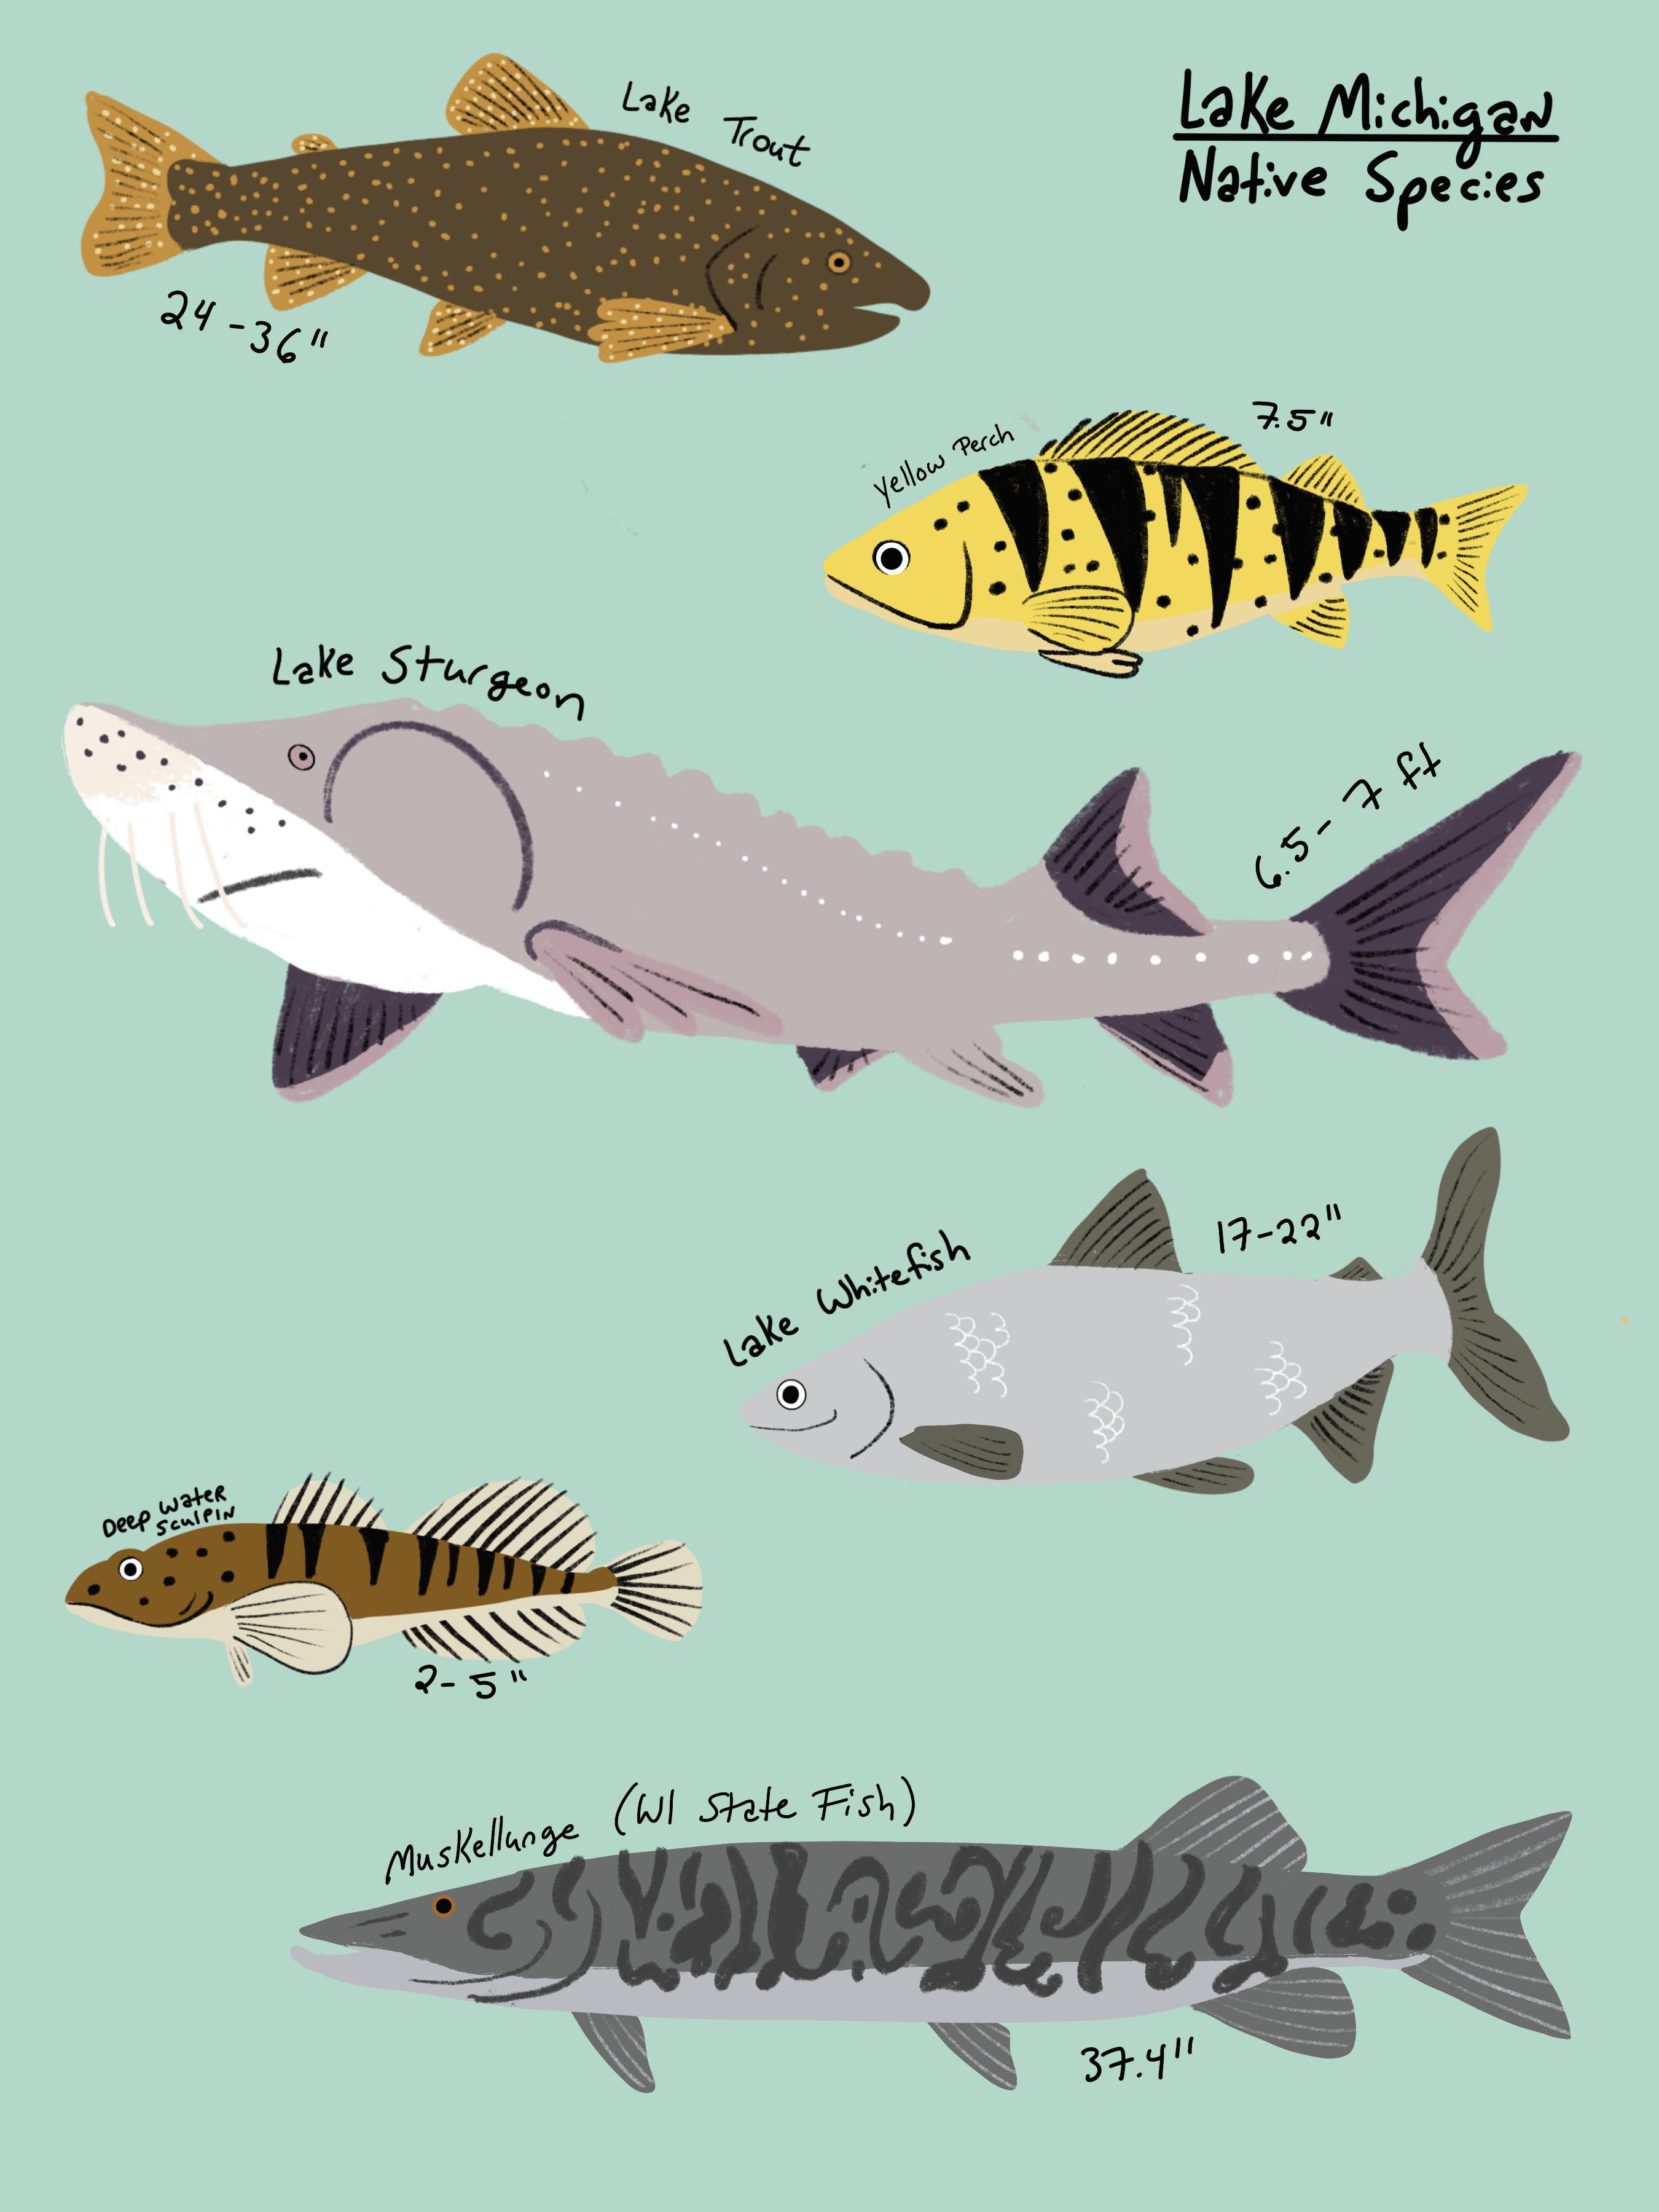 Lake Michigan
Native Species
Lake Trout
24-36"
Yellow Perch
7.5"
Lake Sturgeon
6.5-7 ft
Lake Whitefish
17-22"
Deep Water
Sculpin
2-5"
Muskellunge (WI State Fish)
37.4"